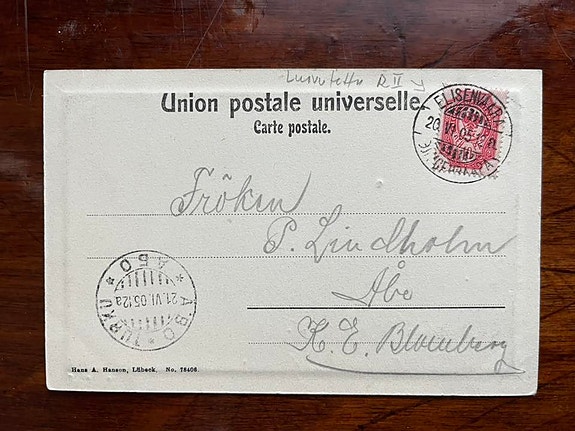 Luovutettu R II
Union postale universelle.
Carte postale.
ELISENVAARA
20.VI.05
Fröken
P. Lindholm
Åbo
K. E. Blomberg
ÅBO * TURKU * 4 5 0 *
21.VI.05.12a
Hans A. Hanson, Lübeck. No. 78406